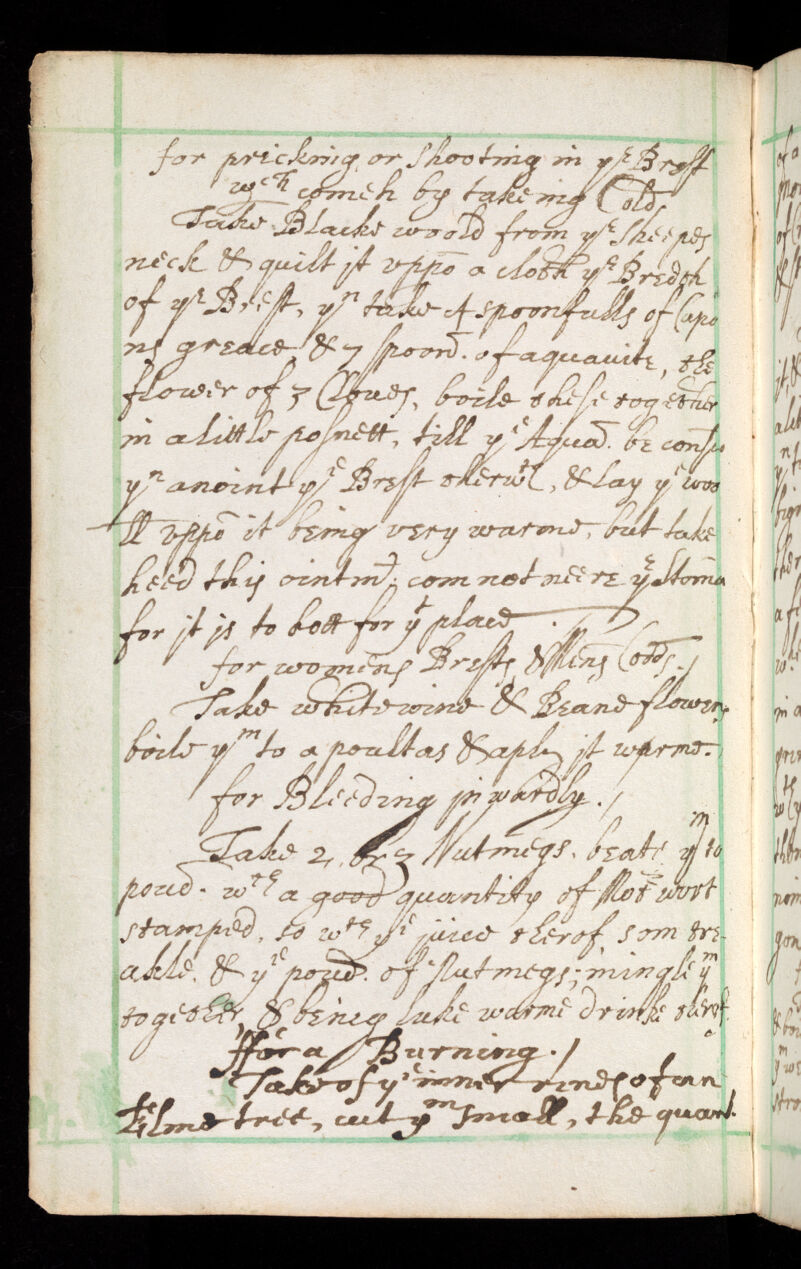 for pricking, or shooting in yᵉ Brest
wᶜʰ cometh by takeing Cold
Take Blacke woold from yᵉ sheepes
neck & quilt jt vppō a cloth yᵉ Bredth
of yᵉ Brest, yⁿ take 4 spoonfulls of Capo
ns greace, & 7 spoon̄. of aquauite, the
flower of 3 Cloues, boile these together
in a little posnett, till yᵉ Aqua. be consu
yⁿ anoint yᵉ Brest therwᵗʰ, & lay yᵉ woo
ll vppō it being very warme, but take
heed this ointmᵗ. com not neere yᵉ Stoma
for jt js to hott for yᵗ place.
for womens Brests, & Mens Codds./
Take white wine & Beane flower,
boile yᵐ to a poultas & aply jt warme.
for Bleeding jnwardly./
Take 2, or 3 Nutmegs. beate yᵐ to
poud. wᵗʰ a good quantity of wort
stamped, so wᵗʰ yᵉ juice therof, som tre-
akle, & yᵉ poud. of Nutmegs; mingle yᵐ
together, & being luke warme drinke therof.
ffor a Burning./
Take of yᵉ inner rine of an
Elme tree, cut yᵐ small, the quant.